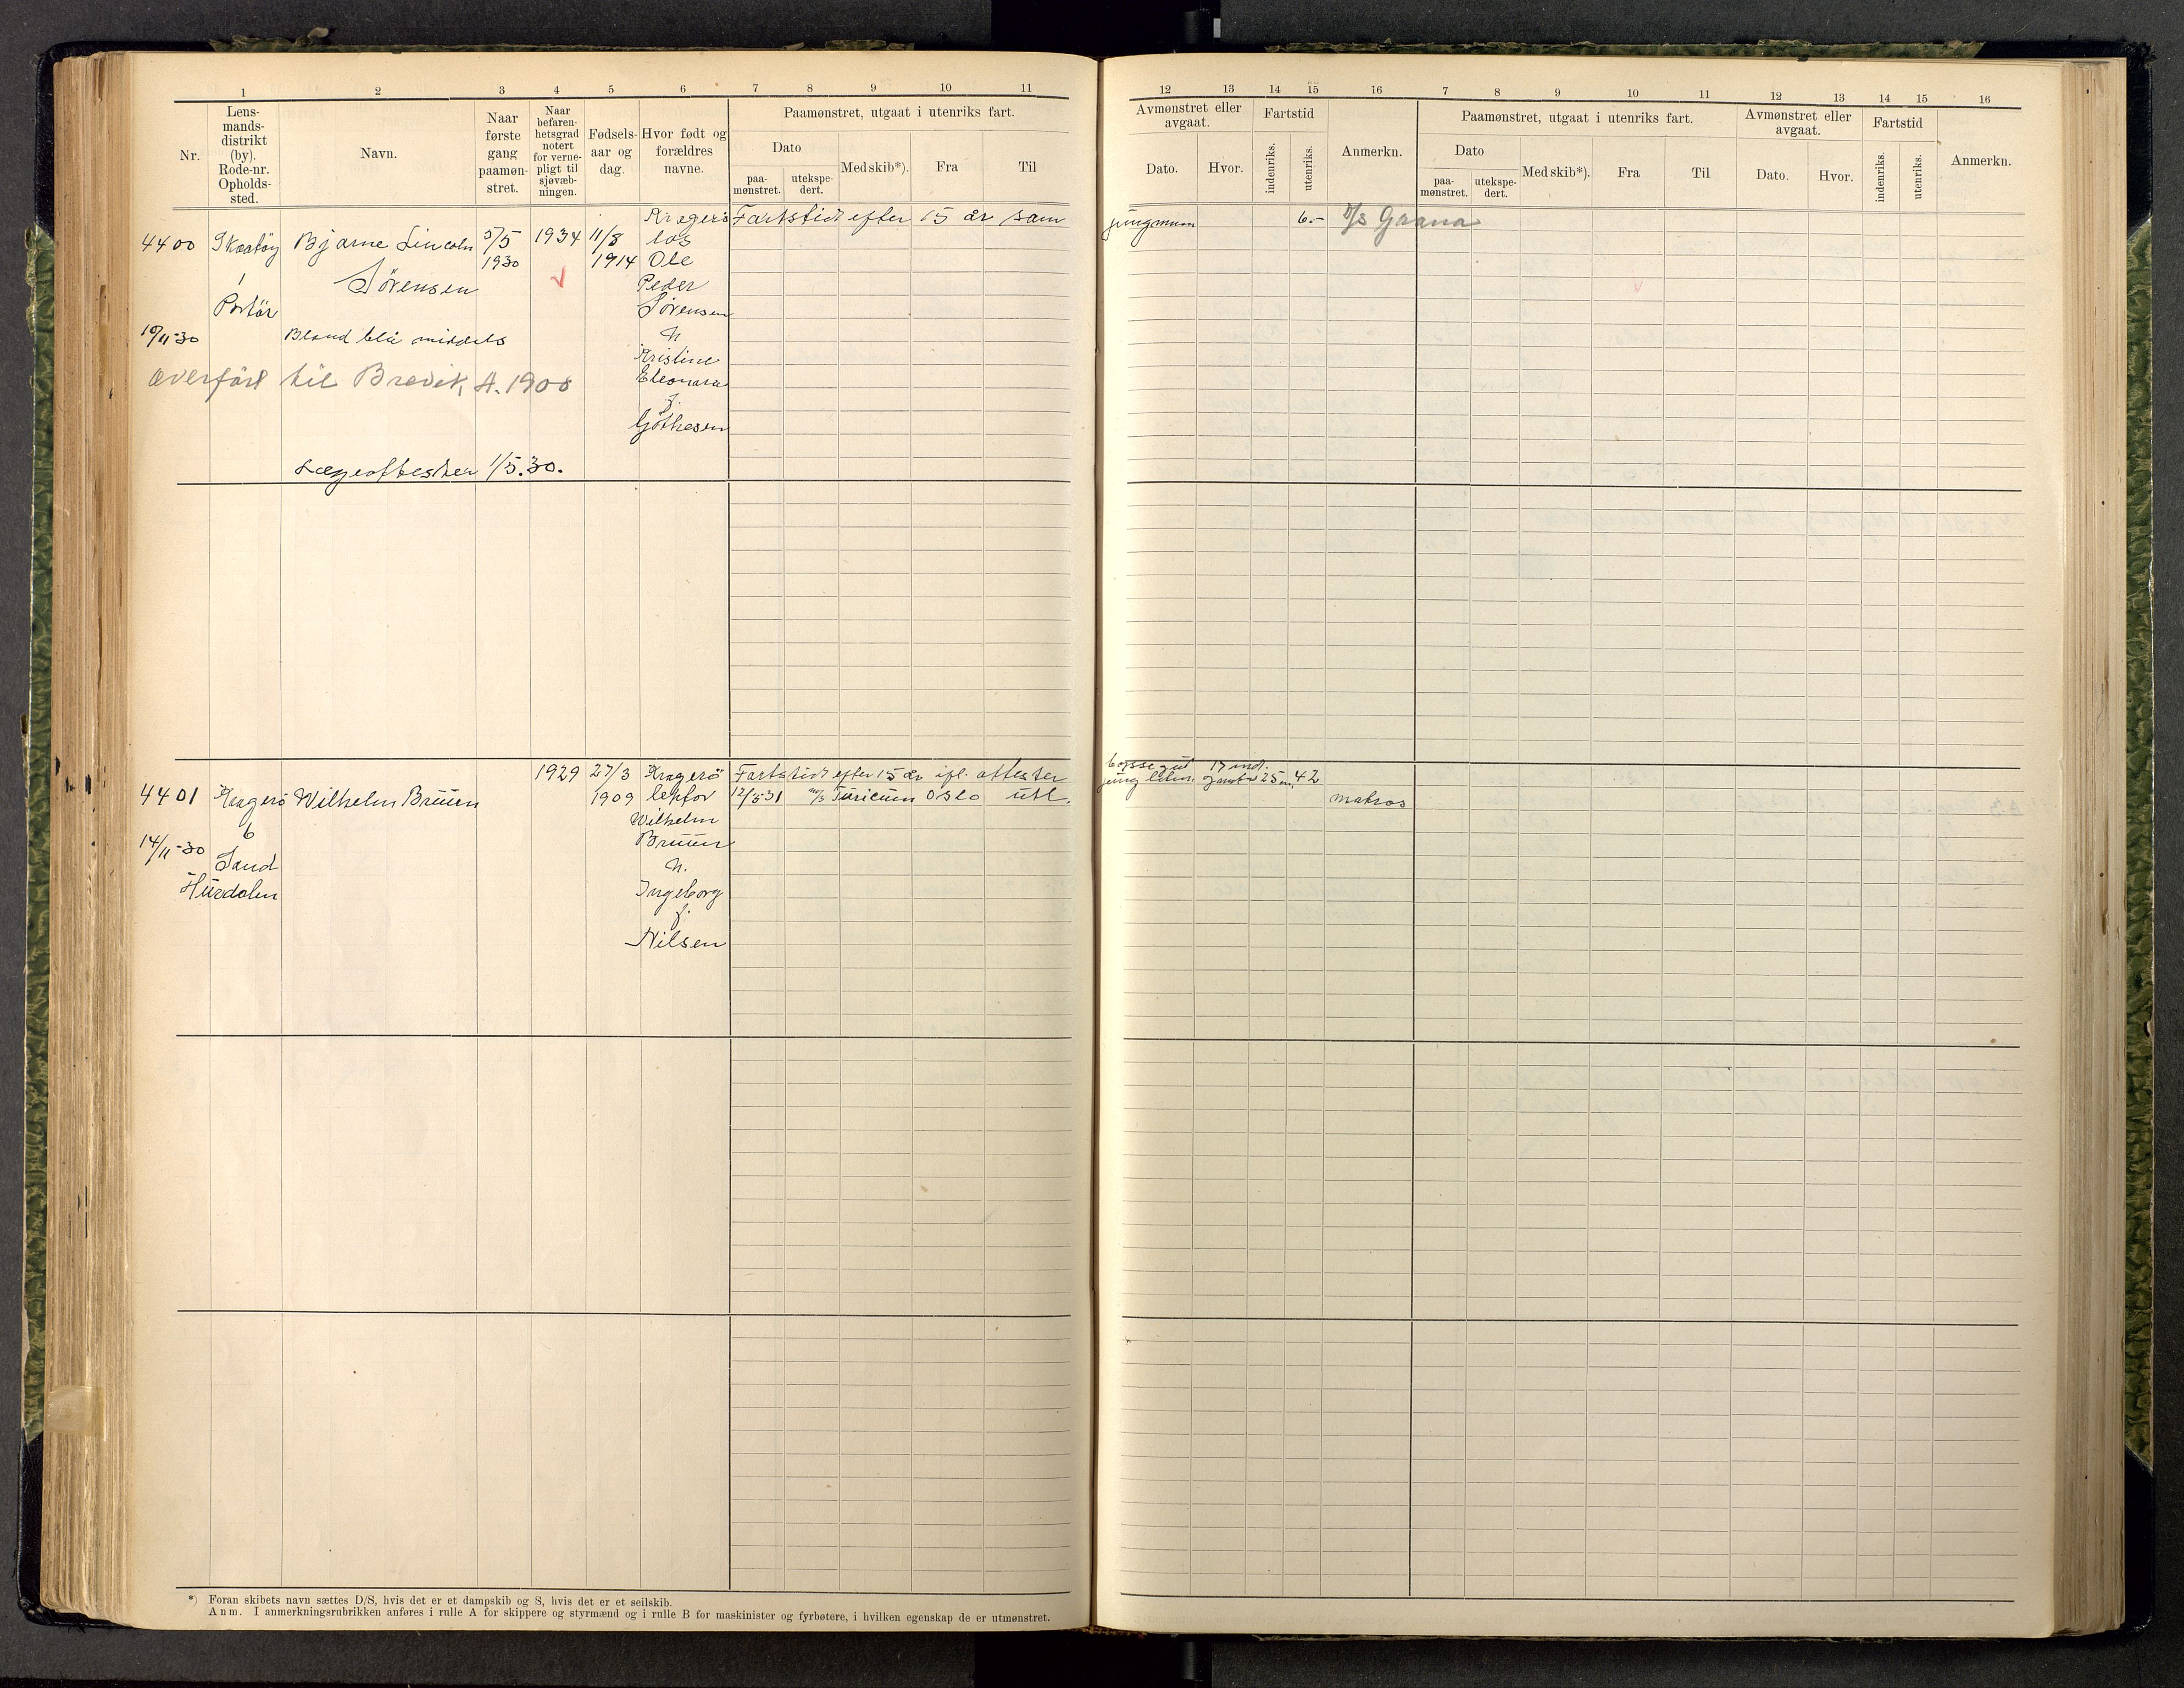 1 2 3 4 5 6 7 8 9 10 11
Nr.
Lens-
mands-
distrikt
(by).
Rode-nr.
Opholds-
sted.
Navn.
Naar
første
gang
paamøn-
stret.
Naar
befaren-
hetsgrad
notert
for verne-
pligt til
sjøvæb-
ningen.
Fødsels-
aar og
dag.
Hvor født og
forældres
navne.
Paamønstret, utgaat i utenriks fart.
Dato
paa-
mønstret.
utekspe-
dert.
Med skib*).
Fra
Til
4400 Skaatöy Bjarne Lincoln 5/5 1934 11/8 Kragerø Fartstid efter 15 år som
1 Sörensen 1930 1914 los
Portör Ole
Peder
Sörensen
10/11-30 Blond blå middels h
Kristine
overfört til Brevik A. 1908 Eleonora
f.
Göthesen
Lægeattester 1/5.30.
4401 Kragerö Wilhelm Bruun 1929 27/3 Kragerö Fartstid efter 15 år ifl. attester
6 1909 lektor 12/5-31 m/s Turicum Oslo utl.
14/11-30 Sand Wilhelm
Hurdalen Bruun
h.
Ingeborg
f.
Nilsen
*) Foran skibets navn sættes D/S, hvis det er et dampskib og S, hvis det er et seilskib.
Anm. I anmerkningsrubrikken anføres i rulle A for skippere og styrmænd og i rulle B for maskinister og fyrbøtere, i hvilken egenskap de er utmønstret.
12 13 14 15 16 7 8 9 10 11 12 13 14 15 16
Avmønstret eller
avgaat.
Dato.
Hvor.
Fartstid
indenriks.
utenriks.
Anmerkn.
Paamønstret, utgaat i utenriks fart.
Dato
paa-
mønstret.
utekspe-
dert.
Med skib*).
Fra
Til
Avmønstret eller
avgaat.
Dato.
Hvor.
Fartstid
indenriks.
utenriks.
Anmerkn.
jungmann 6.-
bysse gut 17 md.
jung 25 m. 42
matros